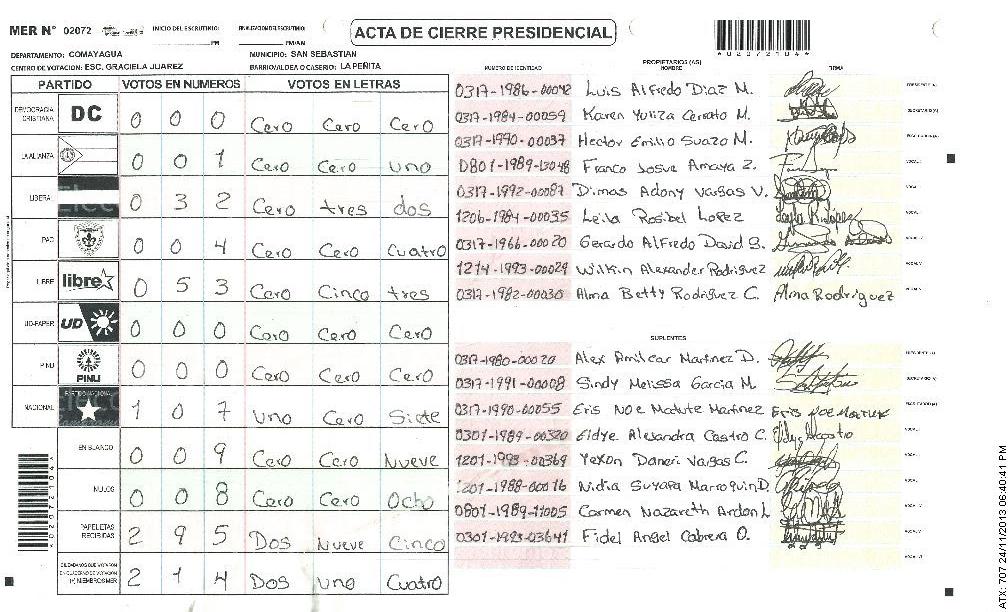 MER Nº 02072
INICIO DEL ESCRUTINIO: PM
FINALIZACION DEL ESCRUTINIO: PM/AM
ACTA DE CIERRE PRESIDENCIAL
*0207210 4*
DEPARTAMENTO: COMAYAGUA
MUNICIPIO: SAN SEBASTIAN
CENTRO DE VOTACION: ESC. GRACIELA JUAREZ
BARRIO/ALDEA O CASERIO: LA PEÑITA
PARTIDO VOTOS EN NUMEROS VOTOS EN LETRAS
DEMOCRACIA CRISTIANA DC 0 0 0 Cero Cero Cero
LA ALIANZA 0 0 1 Cero Cero Uno
LIBERAL 0 3 2 Cero tres dos
PAC 0 0 4 Cero Cero Cuatro
LIBRE libre 0 5 3 Cero Cinco tres
UD-FAPER UD 0 0 0 Cero Cero Cero
PINU PINU 0 0 0 Cero Cero Cero
NACIONAL PARTIDO NACIONAL 1 0 7 Uno Cero Siete
EN BLANCO 0 0 9 Cero Cero Nueve
NULOS 0 0 8 Cero Cero Ocho
PAPELETAS RECIBIDAS 2 9 5 Dos Nueve Cinco
CIUDADANOS QUE VOTARON EN CUADERNO DE VOTACION (+) MIEMBROS MER 2 1 4 Dos Uno Cuatro
PROPIETARIOS (AS)
NUMERO DE IDENTIDAD NOMBRE FIRMA
0317-1986-00042 Luis Alfredo Diaz M. PRESIDENTE (A)
0317-1984-00059 Karen Yuliza Cerrato M. SECRETARIO (A)
0317-1990-00037 Hector Emilio Suazo M. ESCRUTADOR (A)
0801-1989-13048 Franco Josue Amaya Z. VOCAL I
0317-1992-00087 Dimas Adony Vargas V.
1206-1984-00035 Leila Rosibel Lopez
0317-1966-00020 Gerardo Alfredo David S.
1214-1993-00029 Wilkin Alexander Rodriguez
0317-1982-00030 Alma Betty Rodriguez C. Alma Rodriguez
SUPLENTES
0317-1980-00020 Alex Amilcar Martinez D. PRESIDENTE (A)
0317-1991-00008 Sindy Melissa Garcia M. SECRETARIO (A)
0317-1990-00055 Eris Noe Matute Martinez Eris Noe Matute ESCRUTADOR (A)
0301-1989-00320 Eidye Alexandra Castro C.
1201-1993-00369 Yexon Daneri Vargas C.
1201-1988-00016 Nidia Suyapa Marroquin D.
0801-1989-11005 Carmen Nazareth Ardon L
0301-1993-03641 Fidel Angel Cabrera O.
ATX: 707 24/11/2013 06:40:41 PM